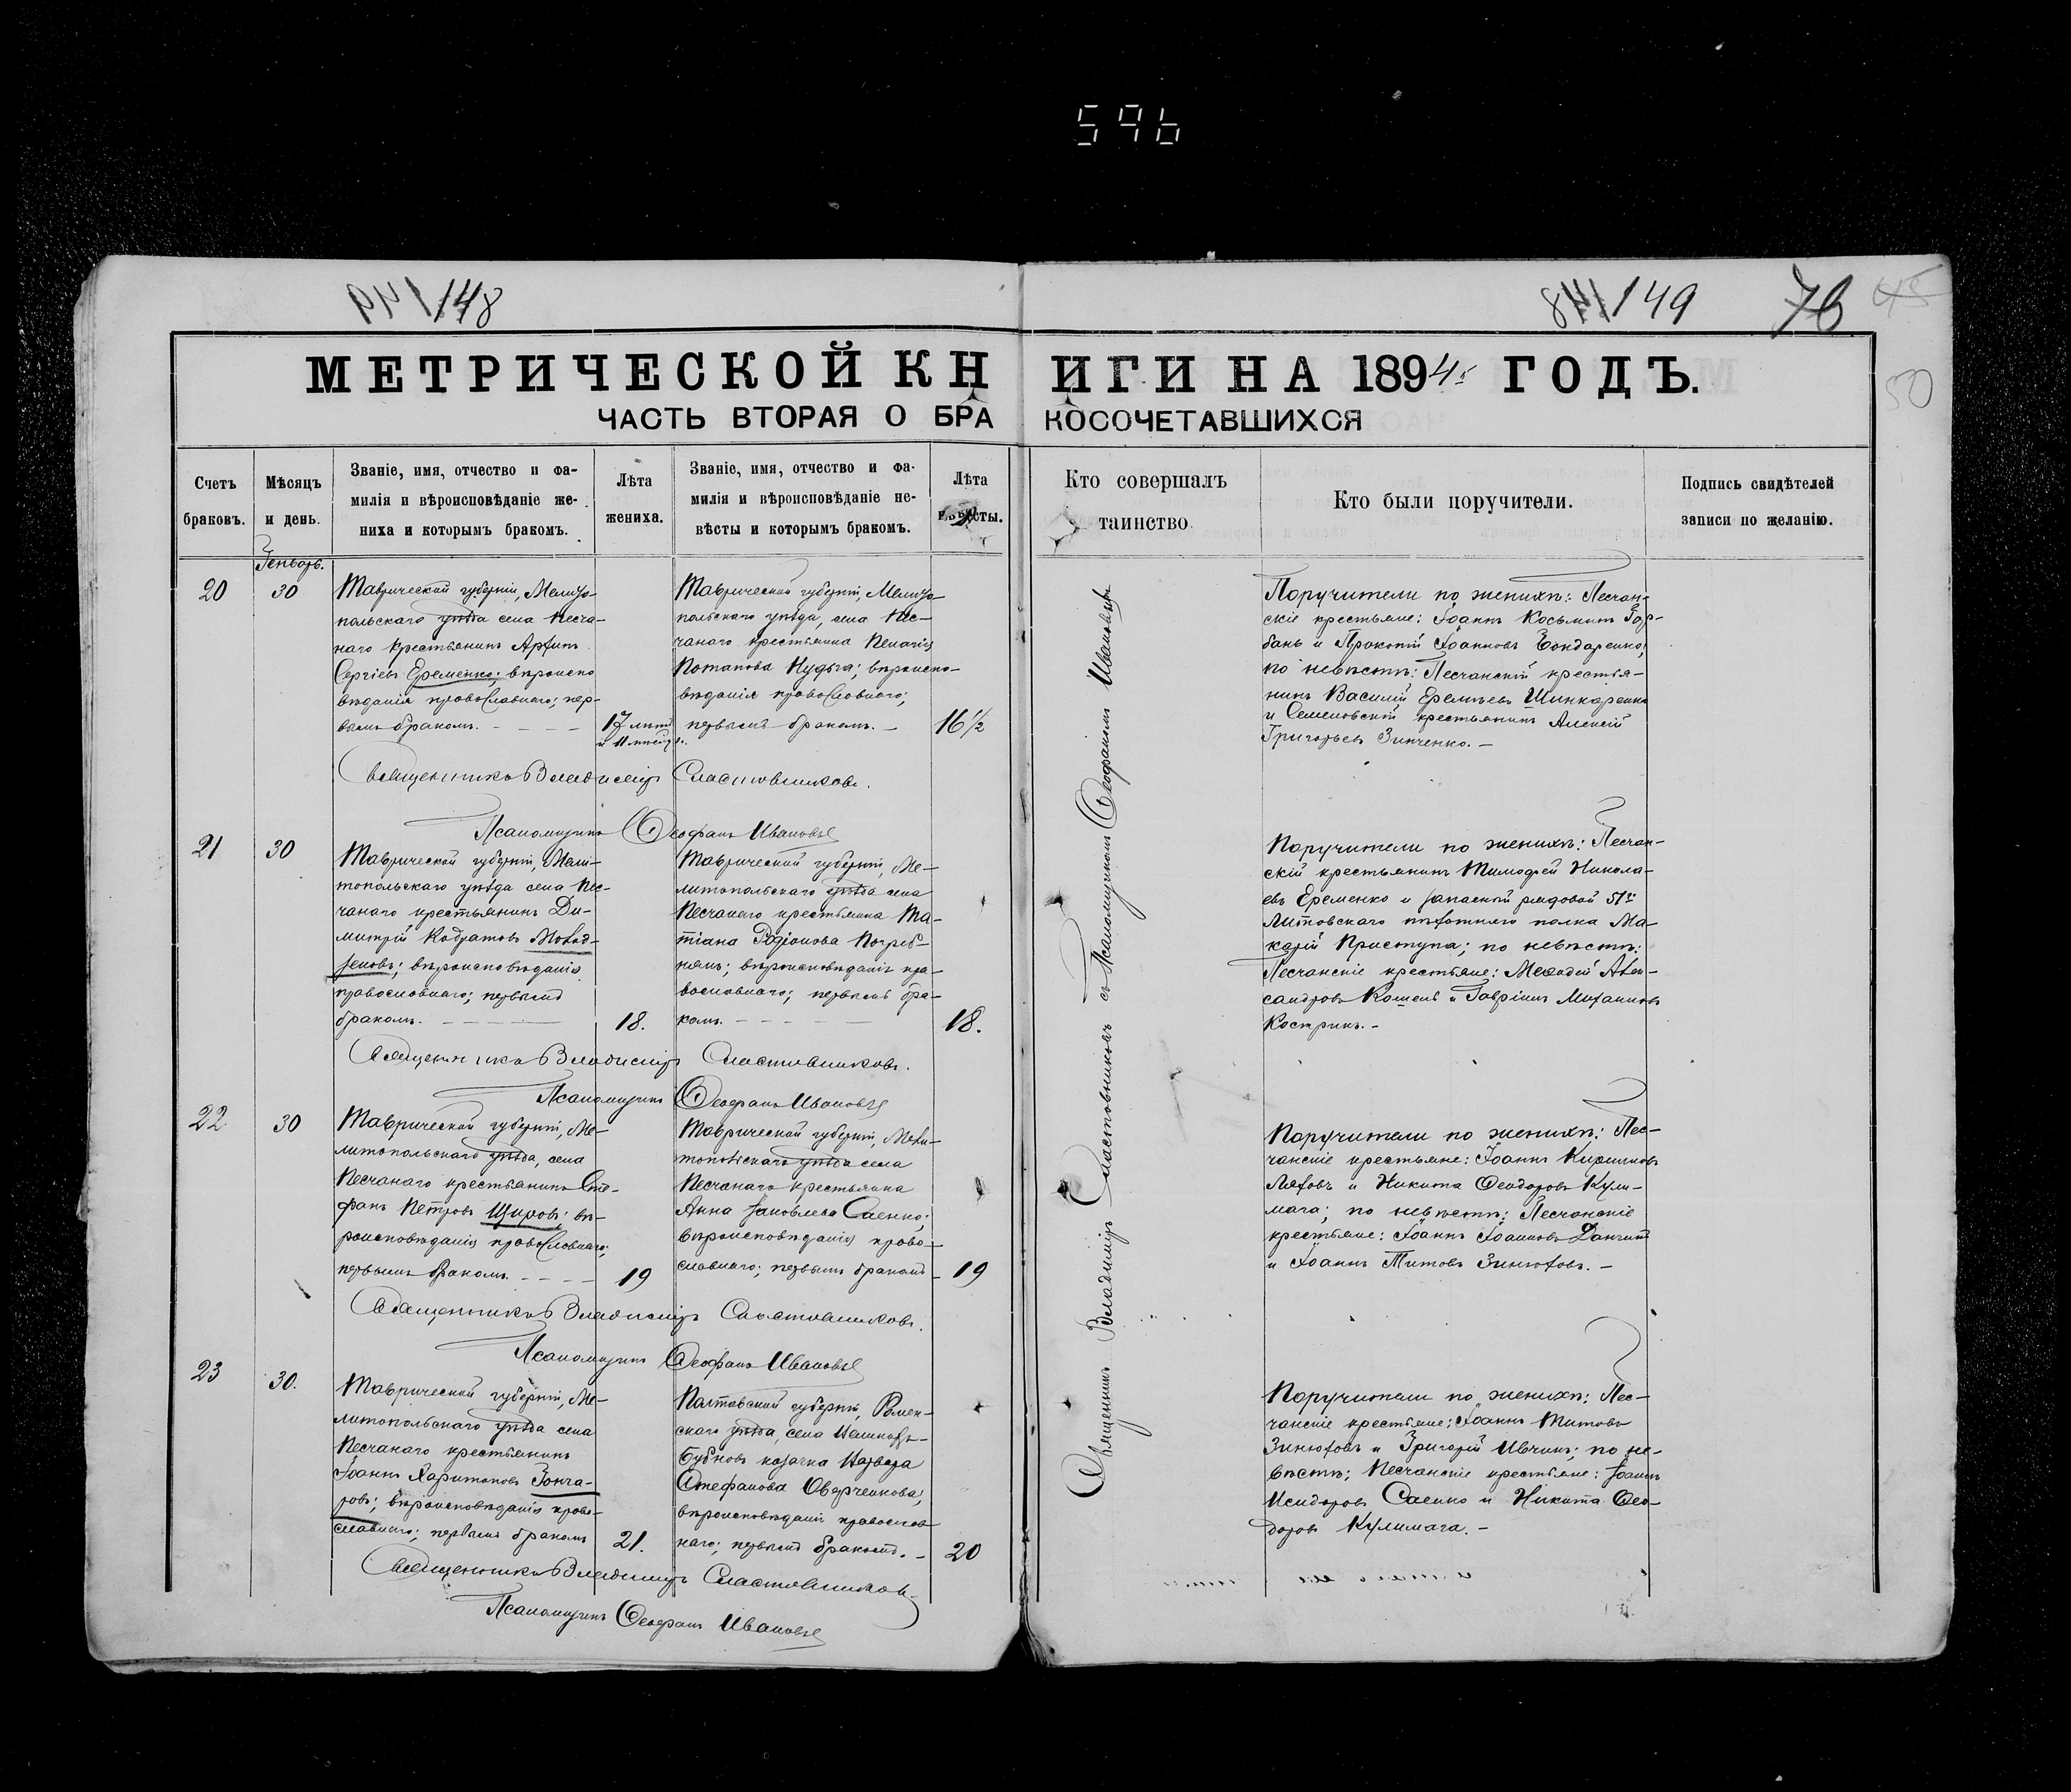 596
148
149
76
45
50
МЕТРИЧЕСКОЙ КНИГИ НА 1894 ГОДЪ.
ЧАСТЬ ВТОРАЯ О БРАКОСОЧЕТАВШИХСЯ
Счетъ браковъ.
Мѣсяцъ и день.
Званіе, имя, отчество и фа-
милія и вѣроисповѣданіе же-
ниха и которымъ бракомъ.
Лѣта
жениха.
Званіе, имя, отчество и фа-
милія и вѣроисповѣданіе не-
вѣсты и которымъ бракомъ.
Лѣта
невѣсты.
Кто совершалъ
таинство
Кто были поручители.
Подпись свидѣтелей
записи по желанію.
Генварь.
20
30
Таврической губерніи, Мелито-
польскаго уѣзда села Песча-
наго крестьянинъ
Сергіевъ Еременко; вѣроиспо
вѣданія православнаго; пер-
вымъ бракомъ.
17 лѣтъ
и 11 мѣсяц.
Таврической губерніи, Мелито-
польскаго уѣзда, села Пес-
чанаго крестьянка Пелагія
Потапова Нудьга; вѣроиспо-
вѣданія православнаго;
первымъ бракомъ. –
16½
Поручители по женихѣ: Песчан-
скіе крестьяне: Іоаннъ Косьминъ Гор-
бань и Прокопій Іоанновъ Бондаренко;
по невѣстѣ: Песчанскій крестья-
нинъ Василій Еремѣевъ Шинкаренко
и Семеновскій крестьянинъ Алексій
Григорьевъ Зинченко. –
Священникъ Владиміръ Сластовниковъ.
Псаломщикъ Ѳеофанъ Ивановъ
21
30
Таврической губерніи, Мели-
топольскаго уѣзда села Пес-
чанаго крестьянинъ Ди-
митрій Кодратовъ
вѣроисповѣданія
православнаго; первымъ
бракомъ.
18.
Таврической губерніи, Ме-
литопольскаго уѣзда села
Песчанаго крестьянка Та-
тіана Родіонова Погреб-
някъ; вѣроисповѣданія пра-
вославнаго; первымъ бра-
комъ.
18.
Поручители по женихѣ: Песчан-
скій крестьянинъ Тимофей Никола-
евъ Еременко и запасной рядовой 51го
Литовскаго пѣхотнаго полка Ма-
карій Приступа; по невѣстѣ:
Песчанскіе крестьяне: Меѳодій Алек-
сандровъ Кошель и Гавріилъ Михаиловъ
Кострик. –
Священникъ Владиміръ Сластовниковъ.
Псаломщикъ Ѳеофанъ Ивановъ
22
30
Таврической губерніи, Ме-
литопольскаго уѣзда, села
Песчанаго крестьянинъ Сте-
фанъ Петровъ Щировъ; вѣ-
роисповѣданія православнаго;
первымъ бракомъ.
19
Таврической губерніи, Мели-
топольскаго уѣзда села
Песчанаго крестьянка
Анна Іаковлева Саенко;
вѣроисповѣданія право-
славнаго; первымъ бракомъ
19
Поручители по женихѣ: Пес-
чанскіе крестьяне: Іоаннъ Кирилловъ
Ляховъ и Никита Ѳеодоровъ Кули-
мага; по невѣстѣ: Песчанскіе
крестьяне: Іоаннъ Іоанновъ
и Іоаннъ Титовъ Зинюховъ. –
Священникъ Владиміръ Сластовниковъ.
Псаломщикъ Ѳеофанъ Ивановъ
23
30.
Таврической губерніи, Ме-
литопольскаго уѣзда села
Песчанаго крестьянинъ
Іоаннъ Харитоновъ Гонча-
ровъ; вѣроисповѣданія право-
славнаго; первымъ бракомъ
21.
Полтавской губерніи, Ромен-
скаго уѣзда, села
козачка Варвара
Стефанова Оверченкова;
вѣроисповѣданія православ
наго; первымъ бракомъ. –
20
Поручители по женихѣ: Пес-
чанскіе крестьяне: Іоаннъ Титовъ
Зинюховъ и Григорій Ивчин; по не-
вѣстѣ; Песчанскіе крестьяне: Іоаннъ
Исидоровъ Саенко и Никита Ѳео-
доровъ Кулимага. –
Священникъ Владиміръ Сластовниковъ
Псаломщикъ Ѳеофанъ Ивановъ
Священникъ Владиміръ Сластовниковъ съ Псаломщикомъ Ѳеофаномъ Ивановымъ